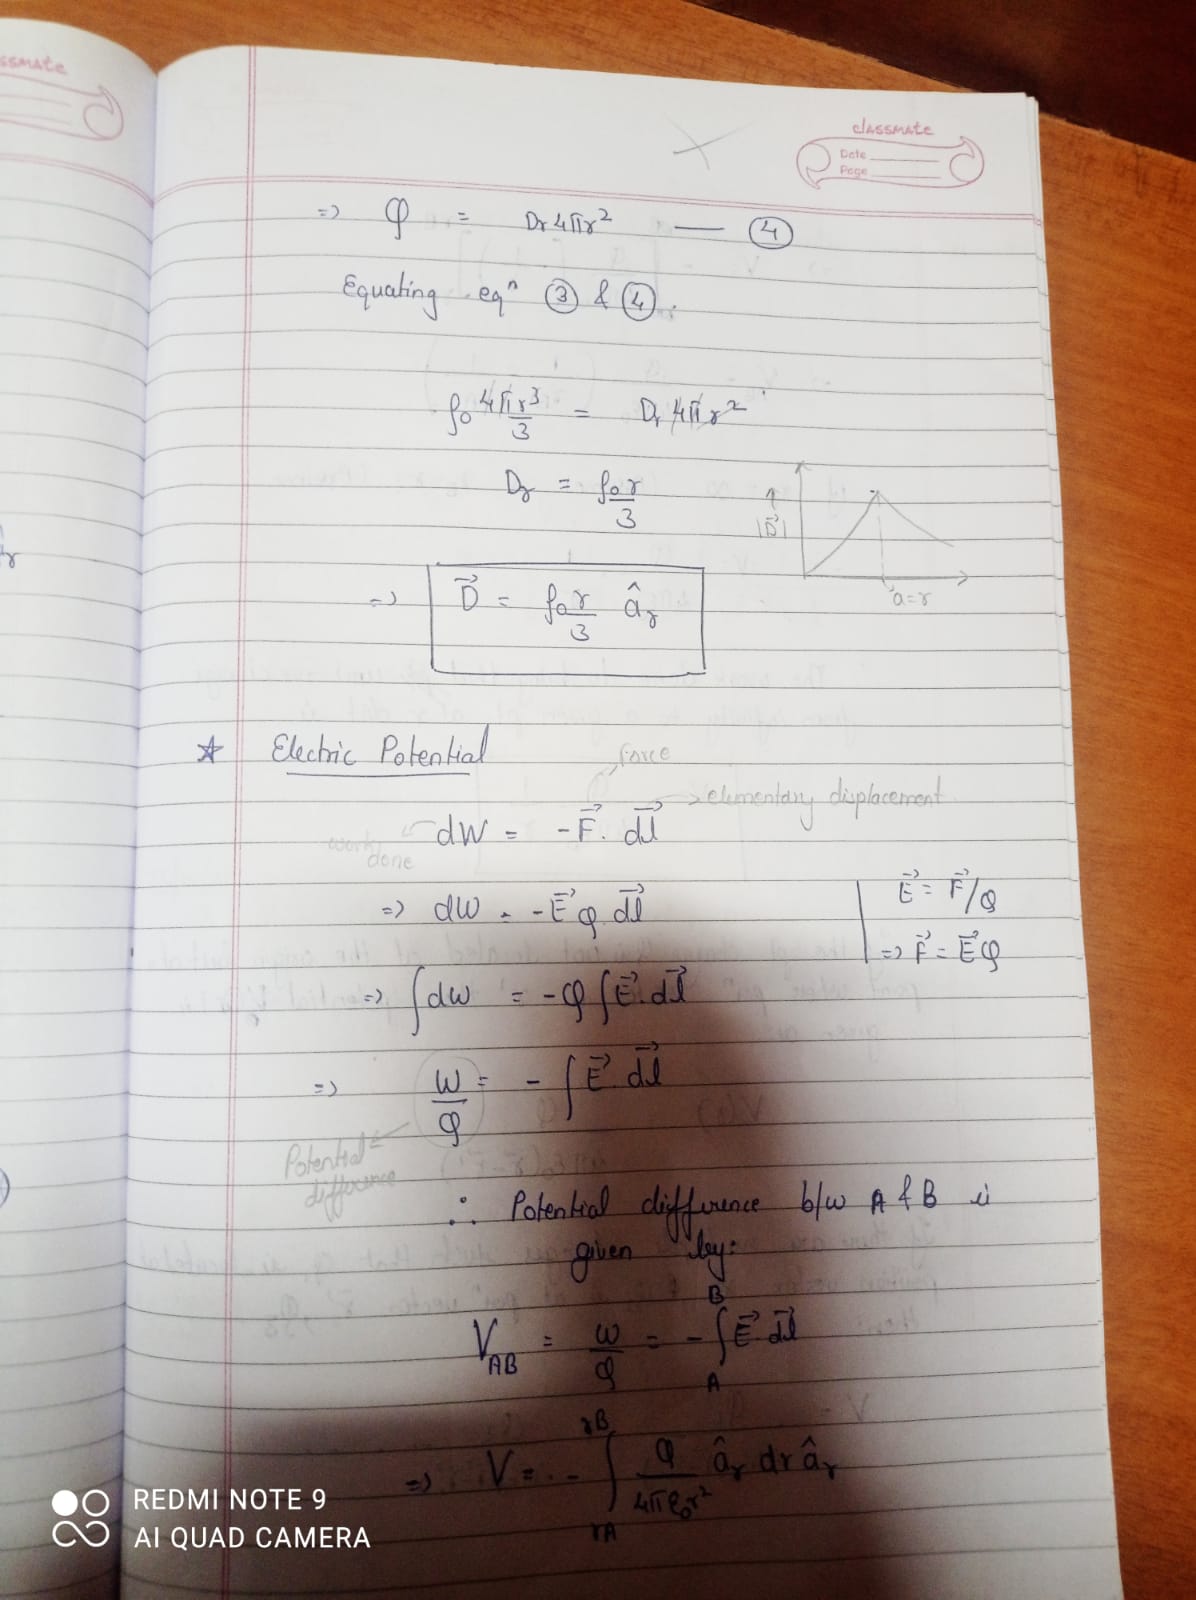 ssmate
classmate
Date
Page
=> Q = Dr 4πr² — ④
Equating eqⁿ ③ & ④.
ρ₀ 4πr³/3 = Dr 4πr²
Dr = ρ₀r/3
↑ |D⃗|
a=r
=> D⃗ = ρ₀r/3 âr
☆ Electric Potential
force
elementary displacement
dW = -F⃗. dl⃗
work done
=> dW = -E⃗ Q. dl⃗
E⃗ = F⃗/Q
=> F⃗ = E⃗Q
=> ∫dW = -Q ∫E⃗. dl⃗
=> W/Q = - ∫E⃗. dl⃗
Potential difference
∴ Potential difference b/w A & B is
given by:
V_AB = W/Q = - ∫_A^B E⃗. dl⃗
=> V = - ∫_rA^rB Q/4πε₀r² âr dr âr
REDMI NOTE 9
AI QUAD CAMERA